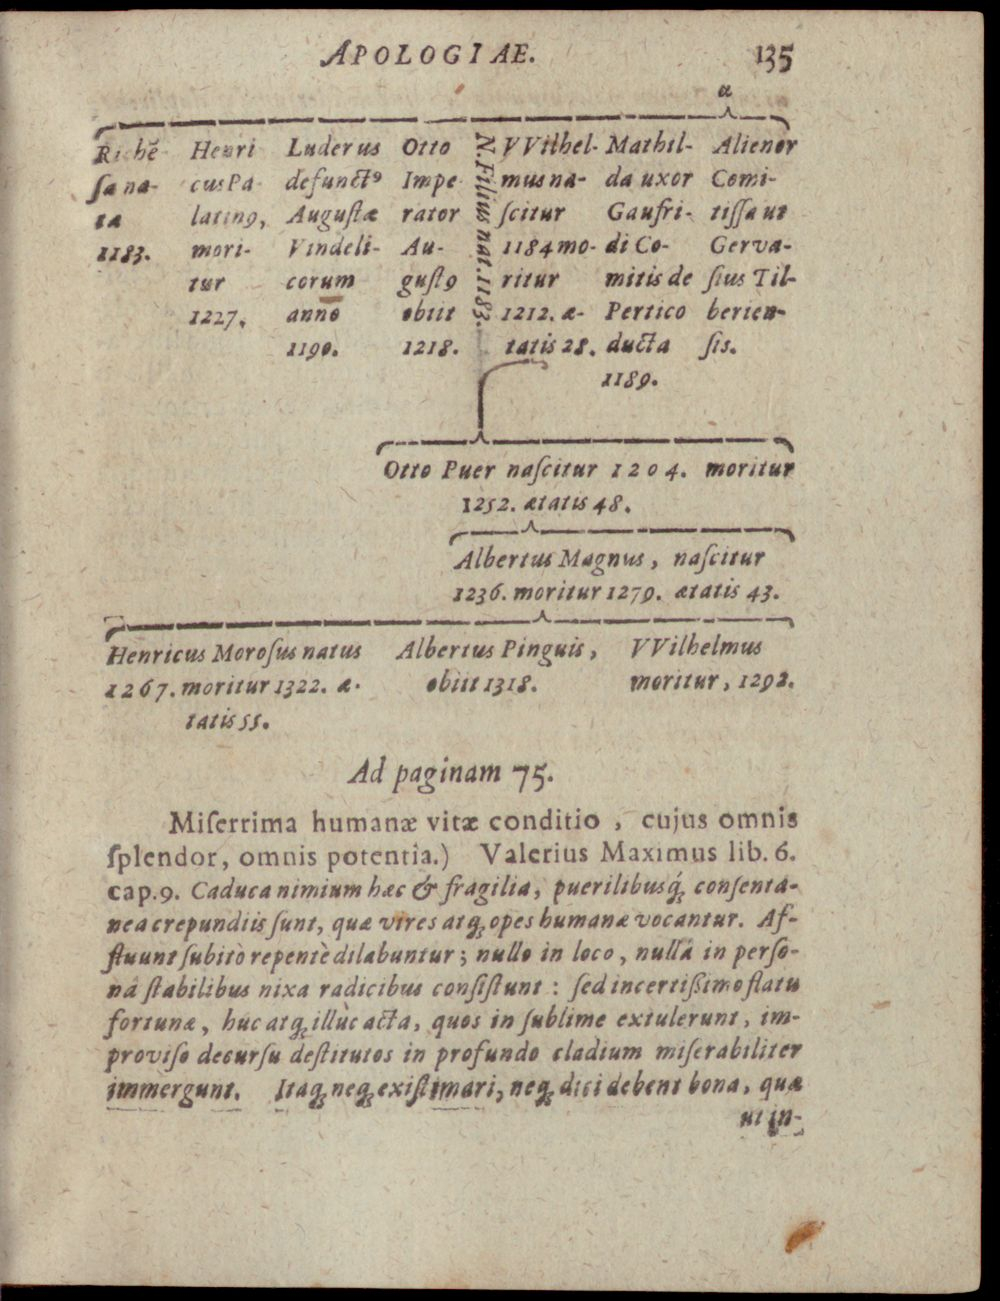 APOLOGIAE. 135
a
Richē
ſa na-
ta
1183.
Henri
cus Pa-
latinꝰ,
mori-
tur
1227.
Luderus
defunctꝰ
Auguſtæ
Vindeli-
corum
anno
1190.
Otto
Impe-
rator
Au-
guſtꝰ
obiit
1218.
N. Filius nat. 1183.
VVilhel-
mus na-
ſcitur
1184 mo-
ritur
1212. æ-
tatis 28.
Mathil-
da uxor
Gaufri-
di Co-
mitis de
Pertico
ducta
1189.
Alienor
Comi-
tiſſa ut
Gerva-
ſius Til-
berien-
ſis.
Otto Puer naſcitur 1204. moritur
1252. ætatis 48.
Albertus Magnus, naſcitur
1236. moritur 1279. ætatis 43.
Henricus Moroſus natus
1267. moritur 1322. æ-
tatis 55.
Albertus Pinguis,
obiit 1318.
VVilhelmus
moritur, 1292.
Ad paginam 75.
Miſerrima humanæ vitæ conditio, cujus omnis
ſplendor, omnis potentia.) Valerius Maximus lib. 6.
cap. 9. Caduca nimium hæc & fragilia, puerilibusq́; conſenta-
nea crepundiis ſunt, quæ vires atq; opes humanæ vocantur. Af-
fluunt ſubitò repentè dilabuntur; nullo in loco, nullâ in perſo-
nâ ſtabilibus nixa radicibus conſiſtunt: ſed incertißimo flatu
fortunæ, huc atq; illùc acta, quos in ſublime extulerunt, im-
proviſo decurſu deſtitutos in profundo cladium miſerabiliter
immergunt. Itaq; neq; exiſtimari, neq; dici debent bona, quæ
ut in-